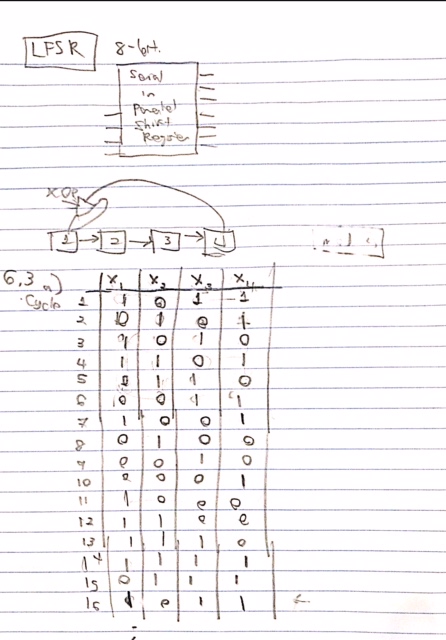 LFSR 8-bit.
Serial
in
Parallel
Shift
Register
XOR
1 2 3 4
6.3 a) X₁ X₂ X₃ X₄
Cycle 1 1 0 1 1
2 0 1 0 1
3 1 0 1 0
4 1 1 0 1
5 0 1 1 0
6 0 0 1 1
7 1 0 0 1
8 0 1 0 0
9 0 0 1 0
10 0 0 0 1
11 1 0 0 0
12 1 1 0 0
13 1 1 1 0
14 1 1 1 1
15 0 1 1 1
16 1 0 1 1 ←